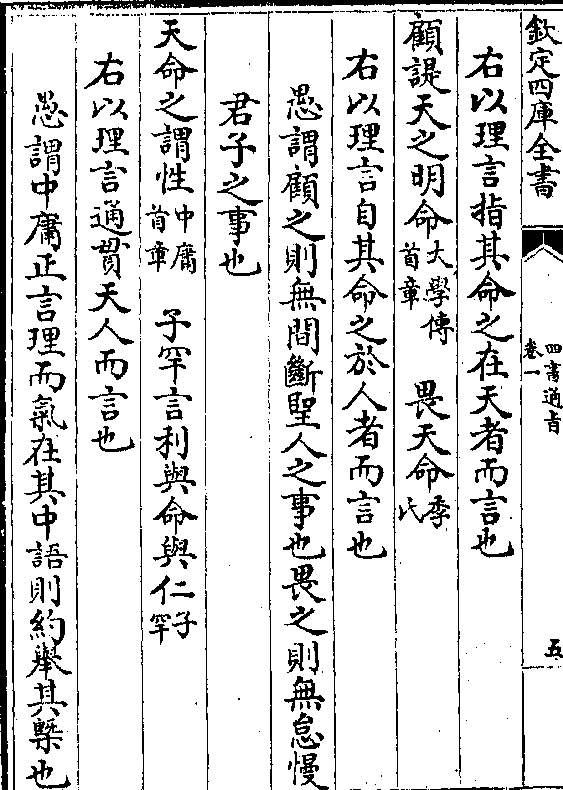 欽定四庫全書
四書通旨
卷一
五
右以理言指其命之在天者而言也
顧諟天之明命大學傳首章　畏天命季氏
右以理言自其命之於人者而言也
愚謂顧之則無間斷聖人之事也畏之則無怠慢
君子之事也
天命之謂性中庸首章　子罕言利與命與仁子罕
右以理言通貫天人而言也
愚謂中庸正言理而氣在其中語則約舉其槩也